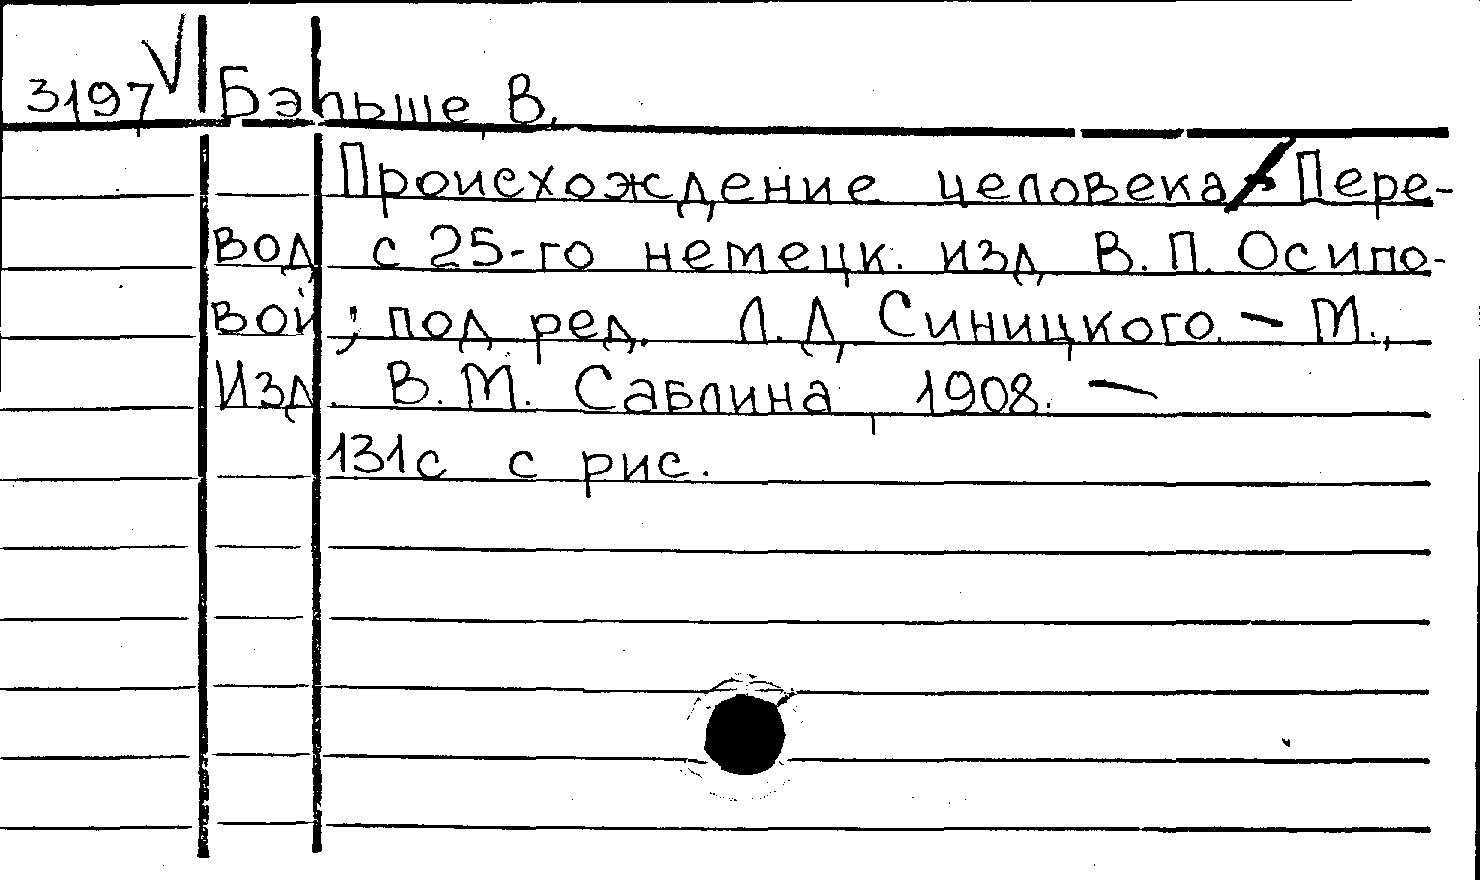 3197 Бэльше В.
Происхождение человека / Пере-
вод с 25-го немецк. изд В.П. Осипо-
вой; под ред. Л.Д Синицкого. – М.,
Изд. В.М. Саблина, 1908. –
131с с рис.